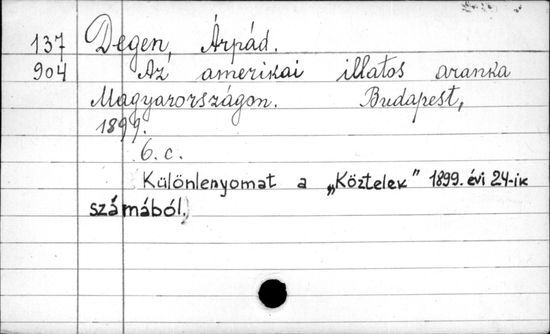 137 Degen, Árpád.
904 Az amerikai illatos aranka
Magyarországon. Budapest,
1899.
6. c.
Különlenyomat a „Köztelek” 1899. évi 24-ik
számából.